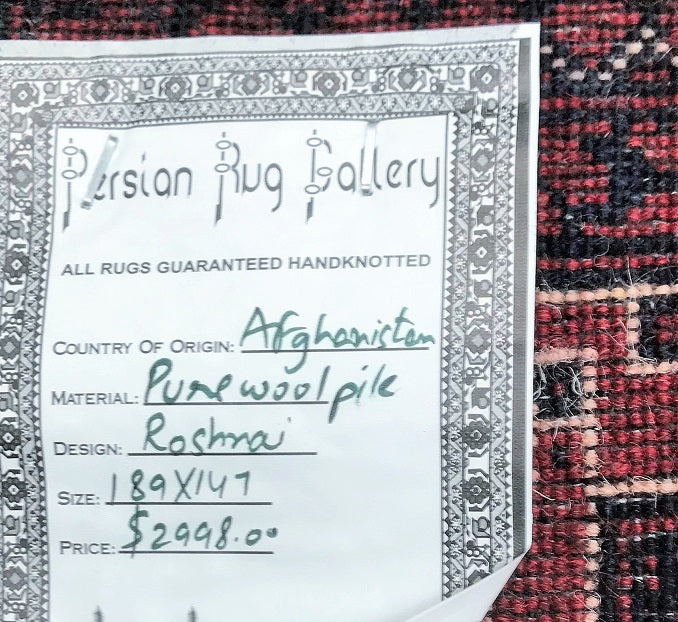 Persian Rug Gallery
ALL RUGS GUARANTEED HANDKNOTTED
COUNTRY OF ORIGIN: Afghanistan
MATERIAL: Pure wool pile
DESIGN: Roshnai
SIZE: 189X147
PRICE: $2998.00